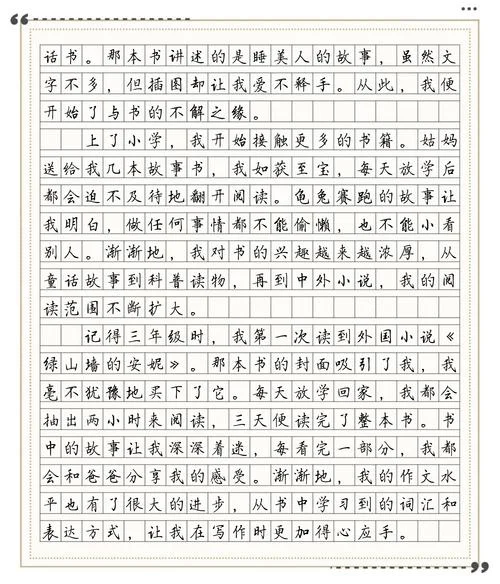 话书。那本书讲述的是睡美人的故事，虽然文
字不多，但插图却让我爱不释手。从此，我便
开始了与书的不解之缘。
上了小学，我开始接触更多的书籍。姑妈
送给我几本故事书，我如获至宝，每天放学后
都会迫不及待地翻开阅读。龟兔赛跑的故事让
我明白，做任何事情都不能偷懒，也不能小看
别人。渐渐地，我对书的兴趣越来越浓厚，从
童话故事到科普读物，再到中外小说，我的阅
读范围不断扩大。
记得三年级时，我第一次读到外国小说《
绿山墙的安妮》。那本书的封面吸引了我，我
毫不犹豫地买下了它。每天放学回家，我都会
抽出两小时来阅读，三天便读完了整本书。书
中的故事让我深深着迷，每看完一部分，我都
会和爸爸分享我的感受。渐渐地，我的作文水
平也有了很大的进步，从书中学习到的词汇和
表达方式，让我在写作时更加得心应手。